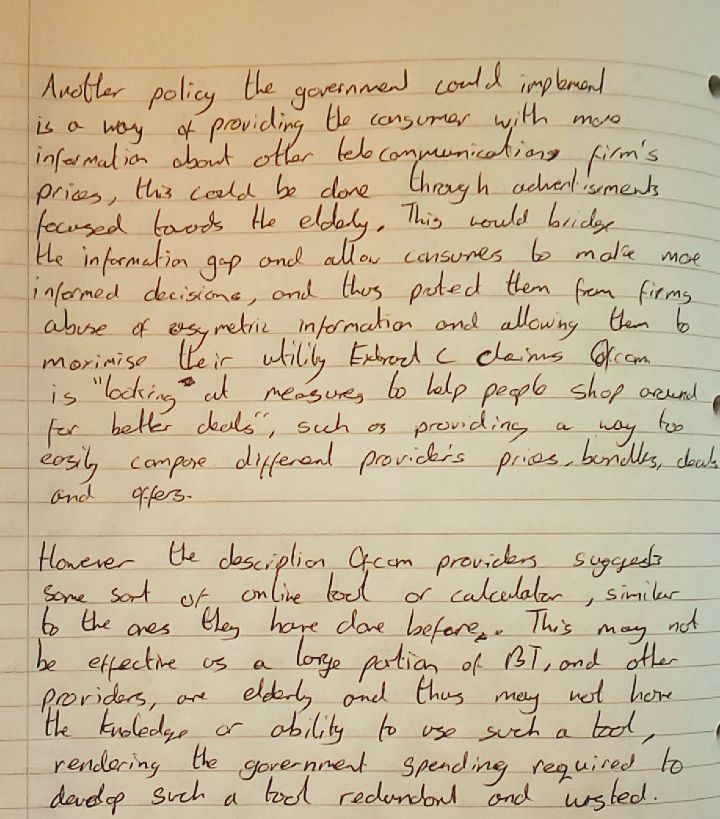 Another policy the government could implement
is a way of providing the consumer with more
information about other telecommunications firm's
prices, this could be done through advertisements
focused towards the elderly. This would bridge
the information gap and allow consumers to make more
informed decisions, and thus protect them from firms
abuse of asymetric information and allowing them to
maximise their utility Extract C claims Ofcom
is "looking at measures to help people shop around
for better deals", such as providing a way too
easily compare different provider's prices, bundles, deals
and offers.
However the description Ofcom providers suggests
some sort of online tool or calculator, similar
to the ones they have done before. This may not
be effective as a large portion of BT, and other
providers, are elderly and thus may not have
the knoledge or ability to use such a tool,
rendering the government spending required to
develop such a tool redundant and wasted.